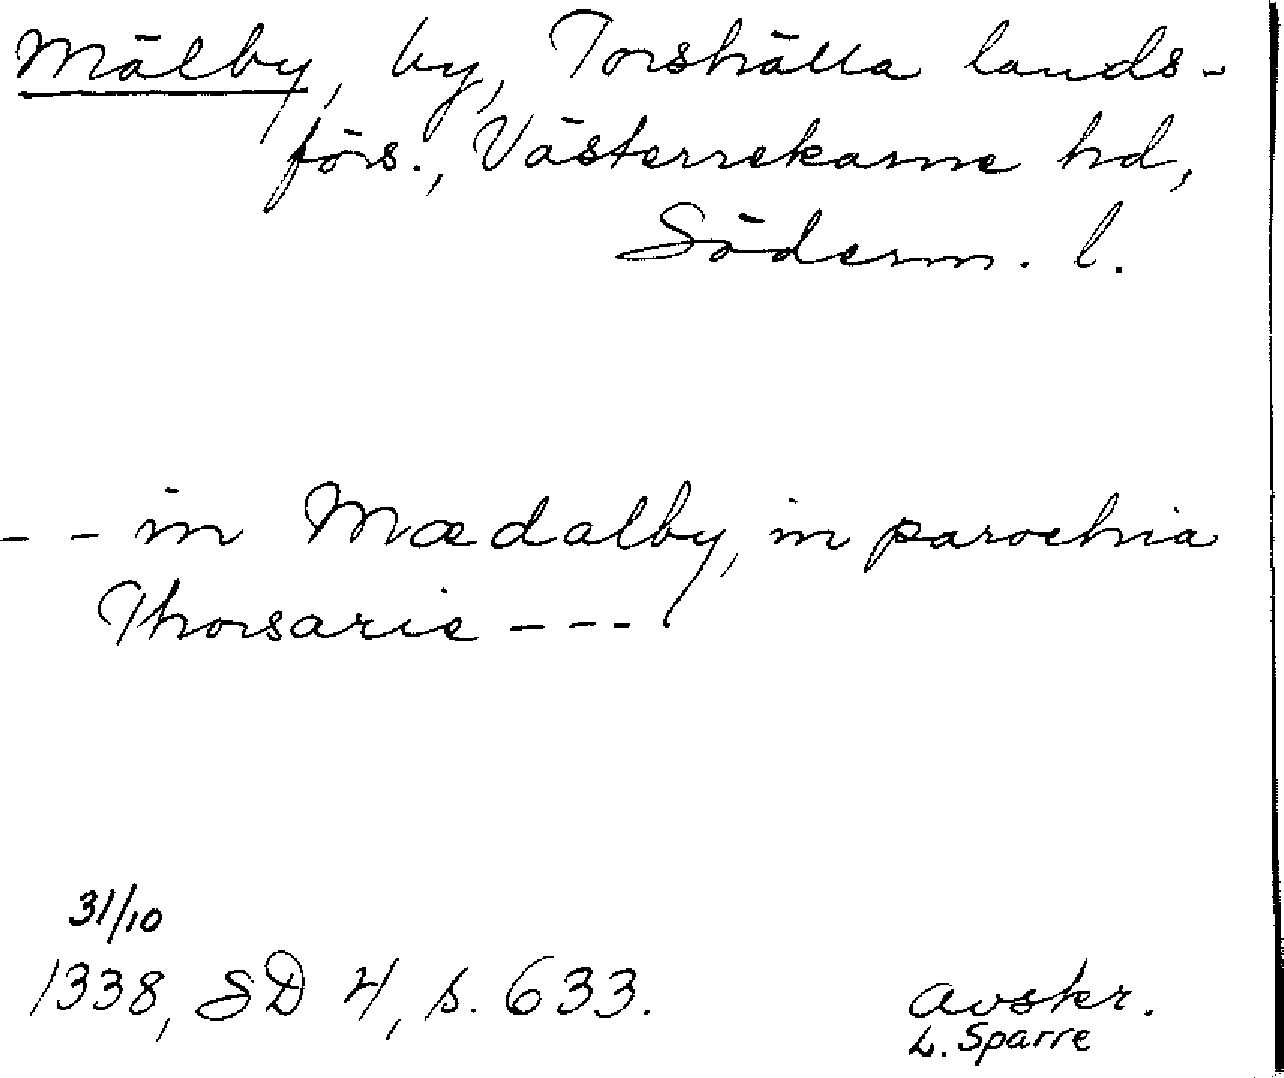 Mälby, by, Torshälla lands-
förs., Västerrekarne hd,
Söderm. l.
- - in Mædalby, in parochia
Thorsarie - - - .
31/10
1338, SD 4, s. 633.
avskr.
L. Sparre